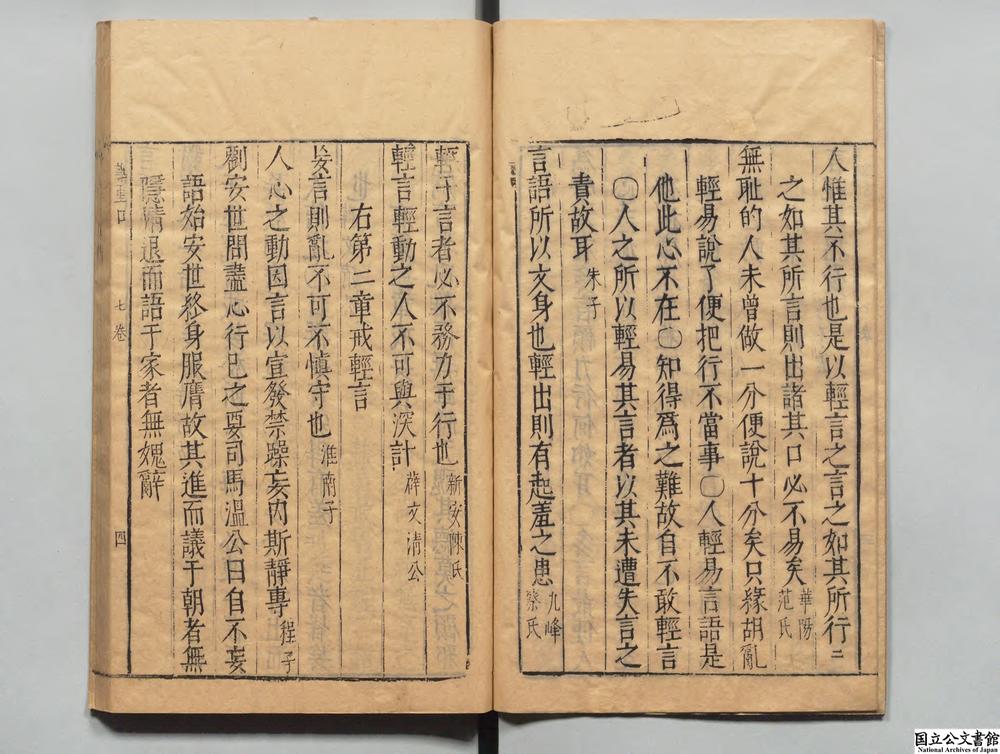 人惟其不行也是以輕言之言之如其所行二
之如其所言則出諸其口必不易矣華陽范氏
無耻的人未曾做一分便說十分矣只緣胡亂
輕易說了便把行不當事〇人輕易言語是
他此心不在〇知得為之難故自不敢輕言
〇人之所以輕易其言者以其未遭失言之
責故耳朱子
言語所以文身也輕出則有起羞之患九峰蔡氏
輕于言者必不務力于行也新安陳氏
輕言輕動之人不可與深計薛文清公
右第二章戒輕言
妄言則亂不可不慎守也淮南子
人心之動因言以宣發禁躁妄內斯靜專程子
劉安世問盡心行己之要司馬溫公曰自不妄
語始安世終身服膺故其進而議于朝者無
隱情退而語于家者無媿辭
七卷
四
国立公文書館
National Archives of Japan